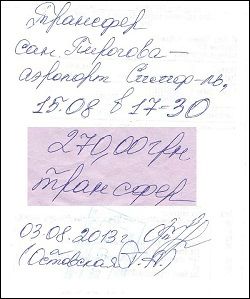 Трансфер
сан. Пирогова –
аэропорт Симф-ль,
15.08 в 17-30
270,00 грн
трансфер
03.08.2013 г.
(Остовская Р.А.)